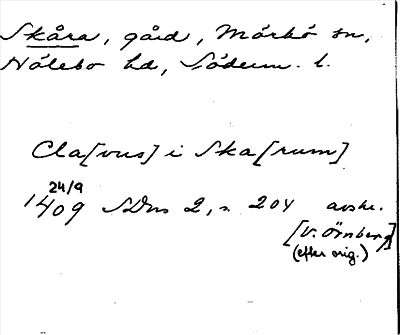 Skåra, gård, Mörkö sn,
Hölebo hd, Söderm. l.
Cla[vus] i Ska[rum]
24/9
1409 SDns 2, s. 204 avskr.
[V. Örnberg]
(efter orig.)